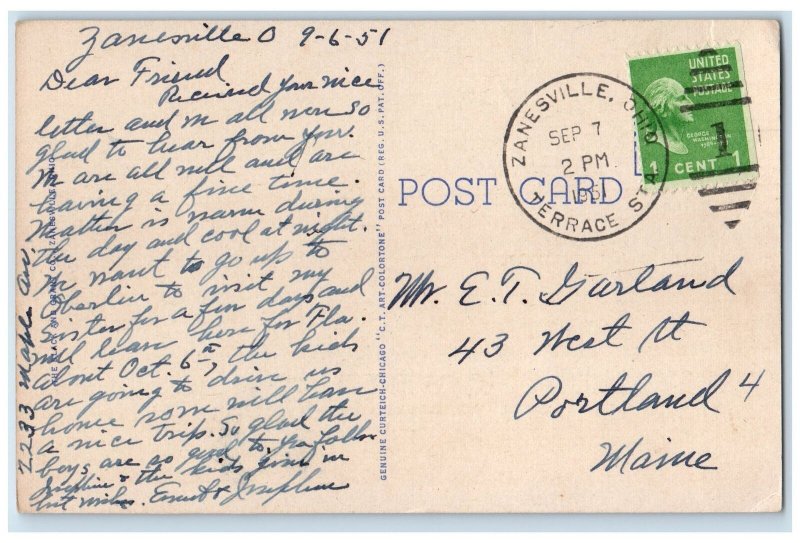 Zanesville O 9-6-51
Dear Friend
Received your nice
letter and we all were so
glad to hear from you.
We are all well and are
having a fine time.
Weather is warm during
the day and cool at night.
We want to go up to
Oberlin to visit my
sister for a few days and
will leave here for Fla.
about Oct. 6th, the kids
are going to drive us
home so we will have
a nice trip. So glad the
boys are so good to you folks
Josephine & the kids join in
best wishes. Ernest & Josephine
2233 Maple Ave.
GENUINE CURTEICH-CHICAGO "C.T. ART-COLORTONE" POST CARD (REG. U.S. PAT. OFF.)
POST CARD
ZANESVILLE, OHIO
SEP 7
2 PM
1951
TERRACE STA.
UNITED
STATES
POSTAGE
GEORGE
WASHINGTON
1 CENT 1
1
Mr. E. T. Garland
43 West St
Portland 4
Maine